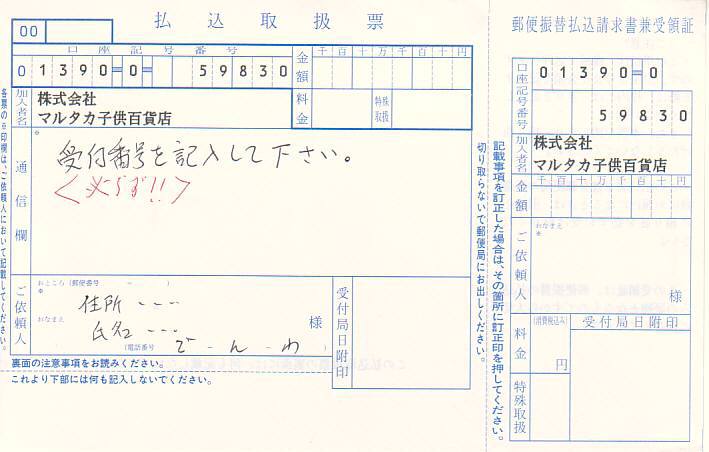 払込取扱票
00
口座記号番号
千百十万千百十円
01390=0= 59830
金額
加入者名
株式会社
マルタカ子供百貨店
料金
特殊取扱
通信欄
※
受付番号を記入して下さい。
<必らず!!>
ご依頼人
おところ (郵便番号 - - )
※
住所 ---
おなまえ
氏名 ---
様
(電話番号 で-ん-わ )
受付局日附印
裏面の注意事項をお読みください。
これより下部には何も記入しないでください。
各票の※印欄は、ご依頼人において記載してください。
切り取らないで郵便局にお出しください。
記載事項を訂正した場合は、その箇所に訂正印を押してください。
郵便振替払込請求書兼受領証
口座記号番号
01390=0
59830
加入者名
株式会社
マルタカ子供百貨店
金額
千百十万千百十円
ご依頼人
おなまえ
※
様
料金
(消費税込み)
円
受付局日附印
特殊取扱